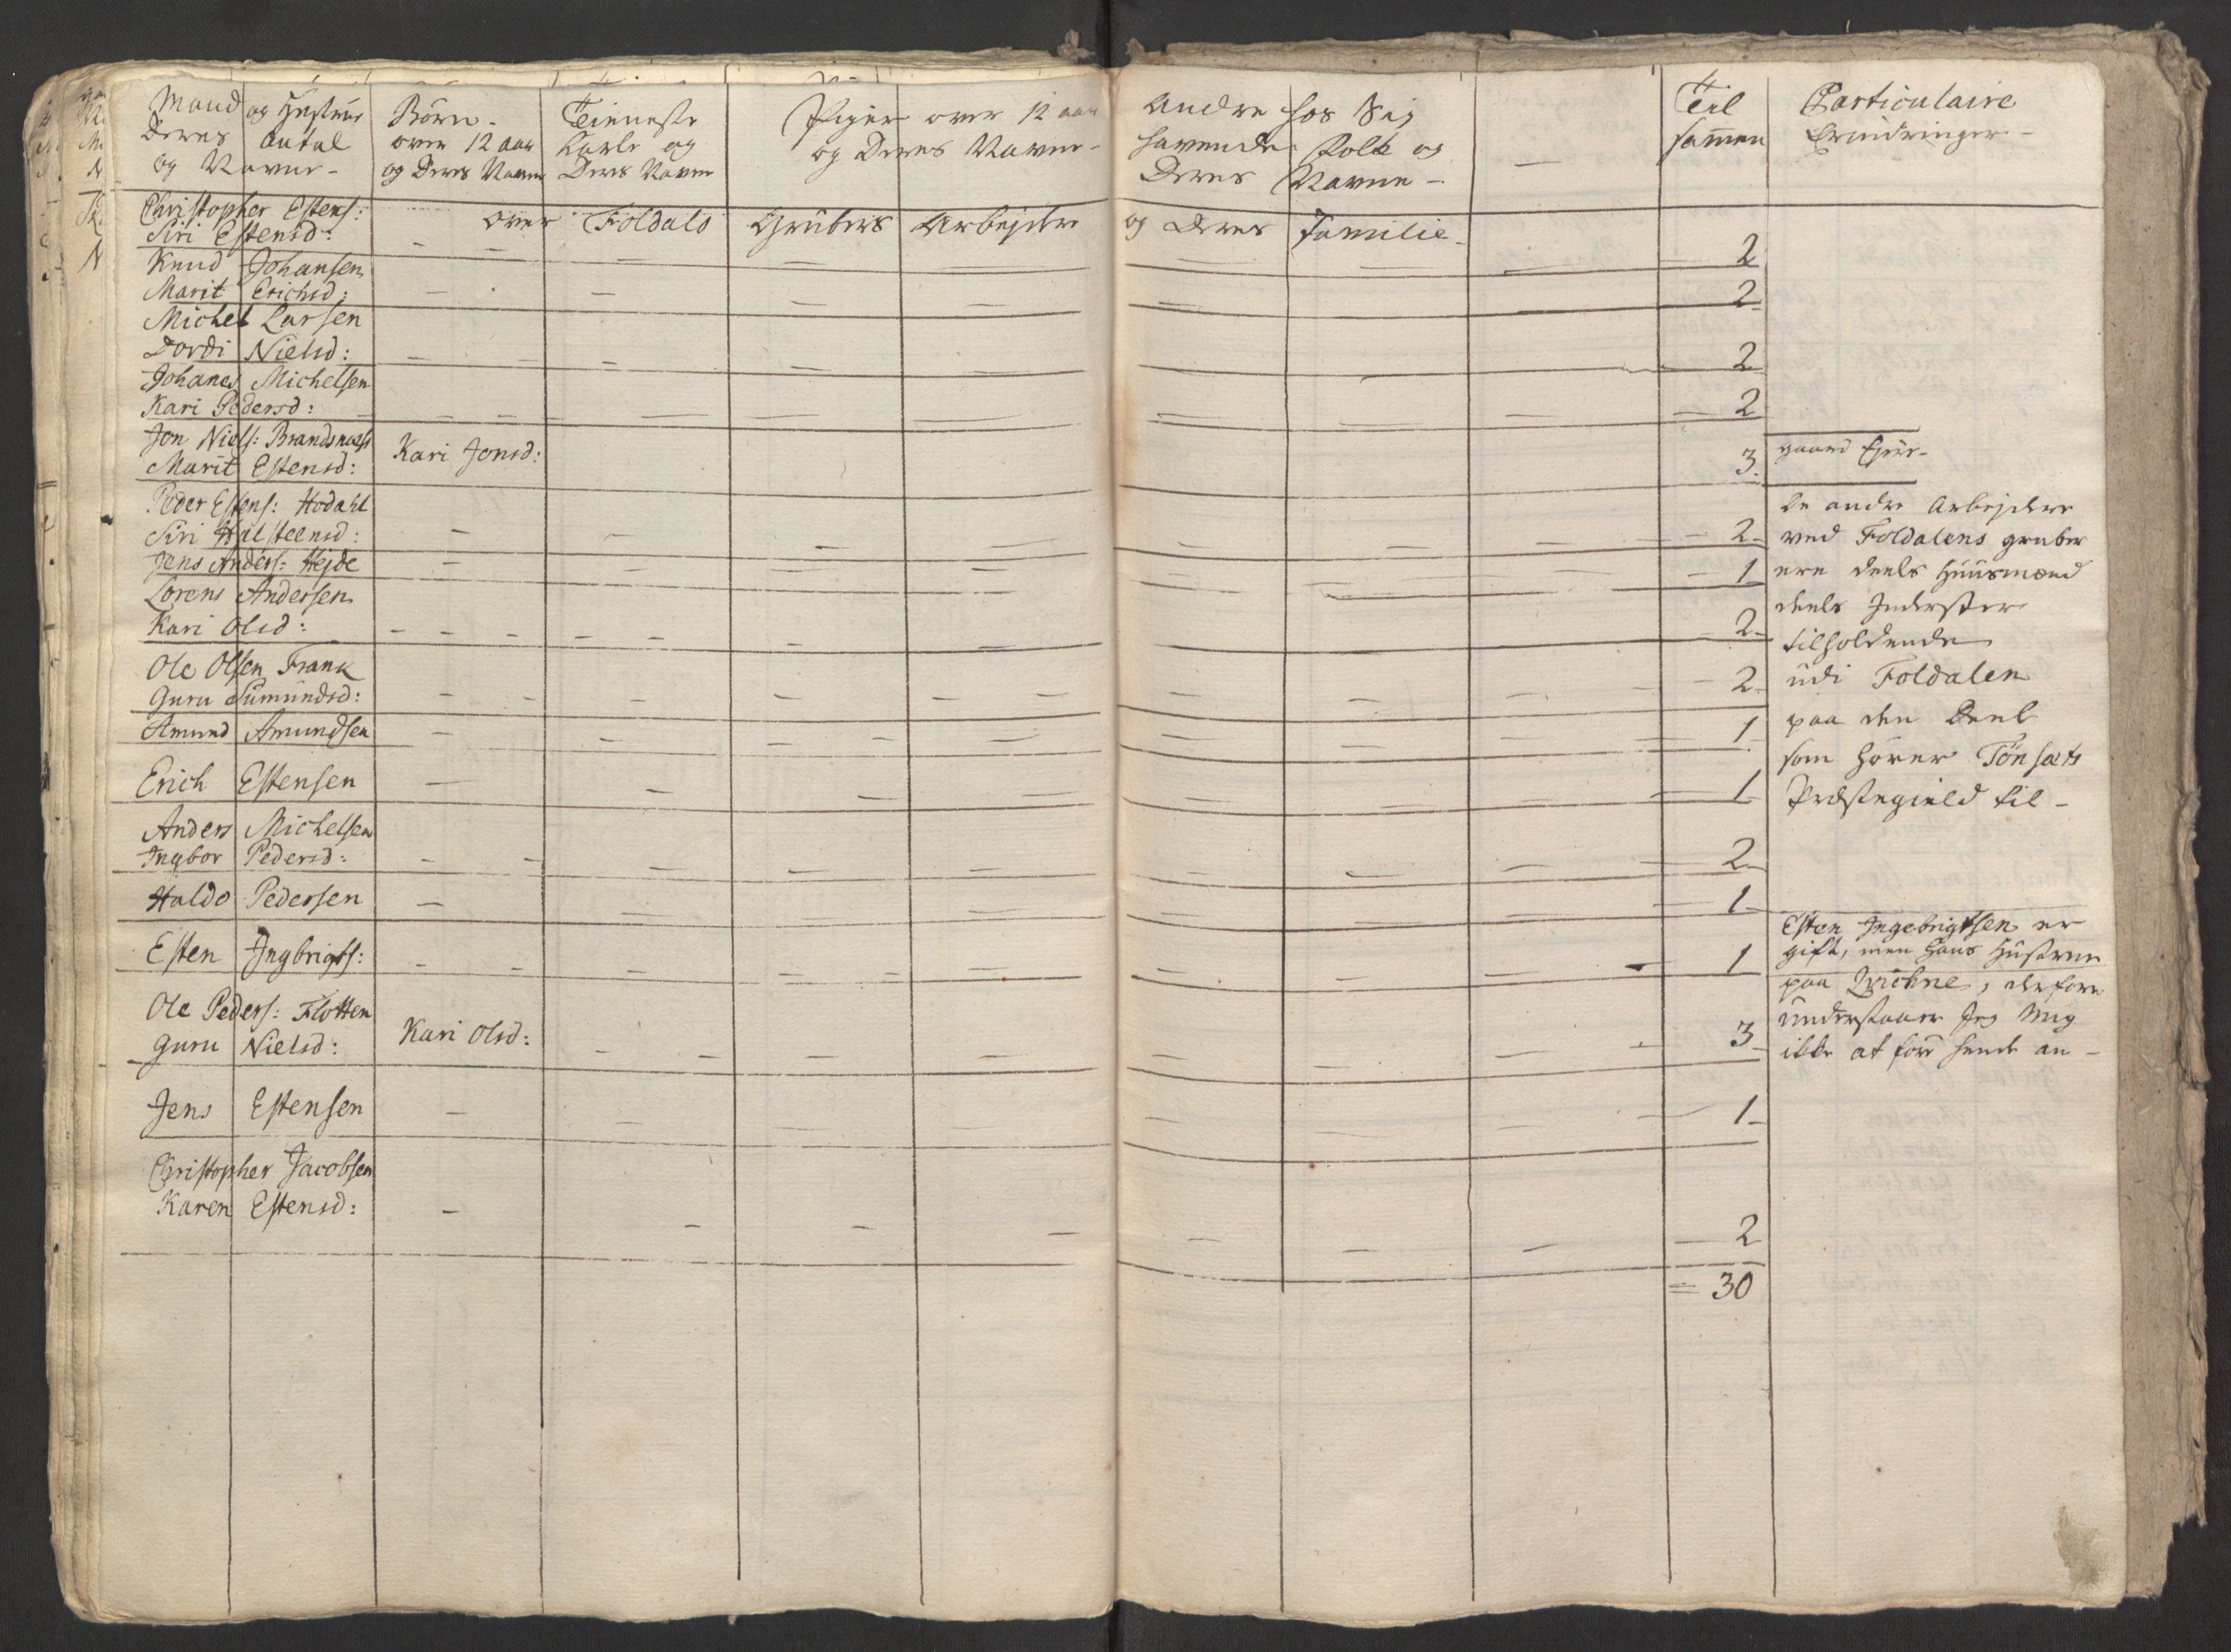 Mand og Hustrue Deres Antal og Navne -
Börn - over 12 aar og Deres Navne
Tieneste Karle og Deres Navne
Piger over 12 aar og Deres Navne -
Andre hos Sig havende Folk og Deres Navne -
Til sam̄en
Particulaire Erindringer -
over Foldals Grubers Arbejdere og Deres Familie -
Christopher Estens:
Siri Estensd: 2
Knud Johansen
Marit Erichsd: 2
Michel Larsen
Dordi Nielsd: 2
Johanes Michelsen
Kari Pedersd: 2
Jon Niels: Brandsnæss
Marit Estensd: Kari Jonsd: 3. gaard Ejer -
Peder Estens: Hodahl
Siri Halsteensd: 2
Jens Anders: Hejde 1
Lorens Andersen
Kari Olsd: 2
Ole Olsen Frank
Guru Simundsd: 2
Amund Amundsen 1
Erich Estensen 1
de andre Arbejdere
ved Foldalens gruber
ere deels Huusmænd
deels Inderster
tilholdende
udi Foldalen
paa den Deel
som hörer Tönsæts
Præstegield til -
Anders Michelsen
Ingbor Pedersd: 2
Haldo Pedersen 1
Esten Ingbrigts: 1
Esten Ingebrigtsen er
gift, men hans Hustrue
paa Qvichne, derfore
understaaer Jeg Mig
ikke at före hende an -
Ole Peders: Flotten
Guru Nielsd: Kari Olsd: 3
Jens Estensen 1
Christopher Jacobsen
Karen Estensd: 2
= 30